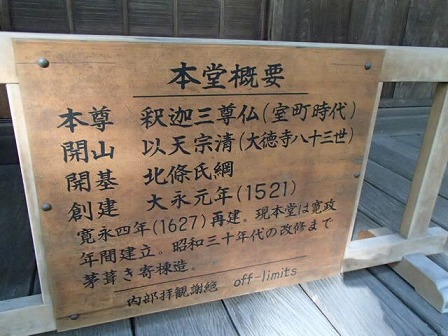 本堂概要
本尊 釈迦三尊仏(室町時代)
開山 以天宗清(大徳寺八十三世)
開基 北條氏綱
創建 大永元年(1521)
寛永四年(1627)再建。現本堂は寛政
年間建立。昭和三十年代の改修まで
茅葺き寄棟造。
内部拝観謝絶 off-limits